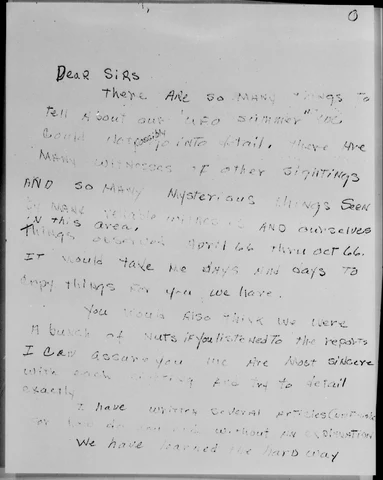 Dear Sirs
There are so many things to
tell about our "UFO summer" we
could not possibly go into detail. There are
many witnesses of other sightings
and so many mysterious things seen
by many reliable and ourselves
in this area.
Things observed April 66 thru Oct 66.
It would take me days and days to
copy things for you, we have.
You would also think we were
a bunch of nuts if you listened to the reports
I can assure you we are most sincere
with each and try to detail
exactly
I have written several articles
For how do you without an explanation
We have learned the hard way